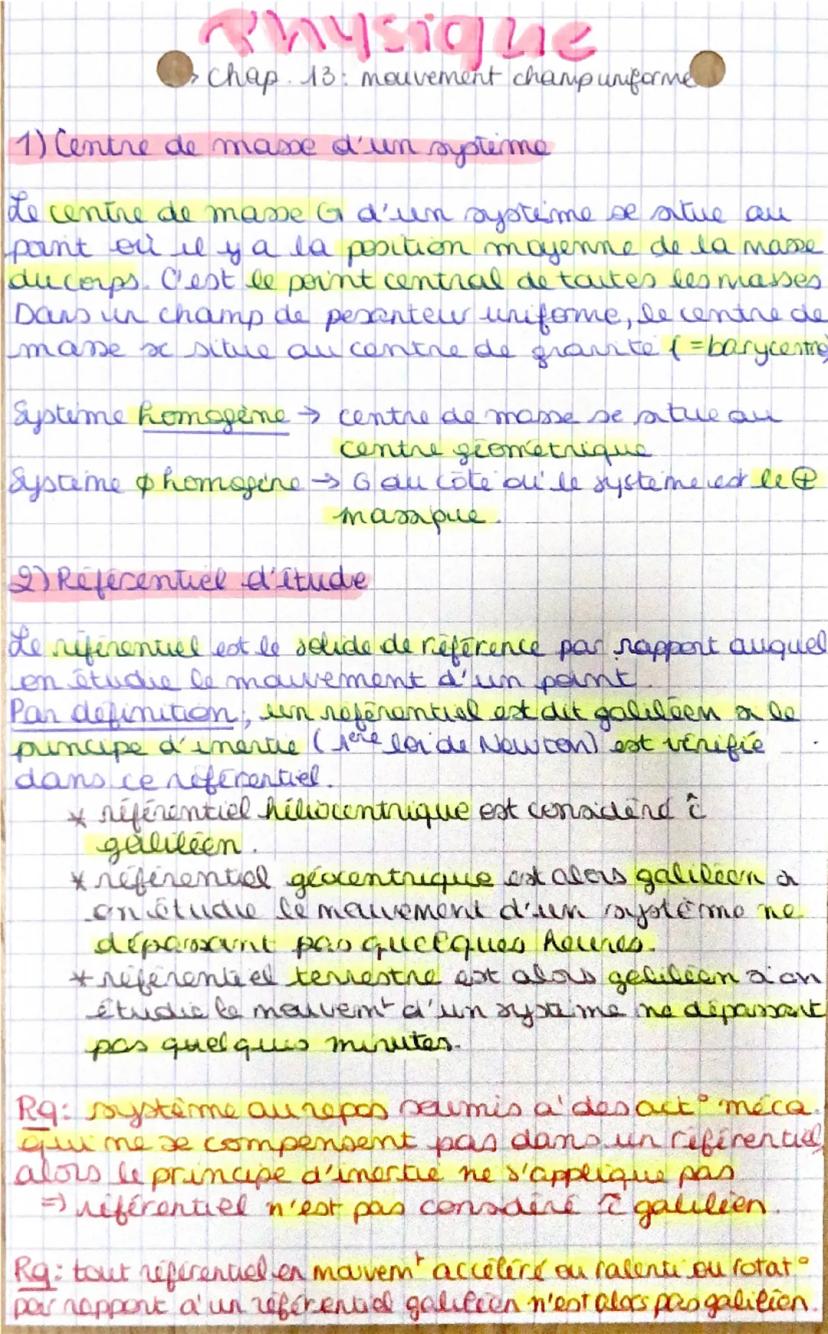 Physique
→ chap. 13: mouvement champ uniforme
1) Centre de masse d'un système
Le centre de masse G d'un système se situe au
point où il y a la position moyenne de la masse
du corps. C'est le point central de toutes les masses
Dans un champ de pesanteur uniforme, le centre de
masse se situe au centre de gravité (=barycentre)
Système homogène → centre de masse se situe au
centre géométrique
Système ϕ homogène → G du côté où le système est le ⊕
massique.
2) Référentiel d'étude
Le référentiel est le solide de référence par rapport auquel
on étudie le mouvement d'un point.
Par définition, un référentiel est dit galiléen si le
principe d'inertie (1ère loi de Newton) est vérifié
dans ce référentiel.
* référentiel héliocentrique est considéré ĉ
galiléen.
* référentiel géocentrique est alors galiléen si
on étudie le mouvement d'un système ne
dépassant pas quelques heures.
* référentiel terrestre est alors galiléen si on
étudie le mouvemt d'un système ne dépassant
pas quelques minutes.
Rq: système au repos soumis à des act° méca.
qui ne se compensent pas dans un référentiel,
alors le principe d'inertie ne s'applique pas
⇒ référentiel n'est pas considéré ĉ galiléen.
Rq: tout référentiel en mouvemt accéléré ou ralenti ou rotat°
par rapport à un référentiel galiléen n'est alors pas galiléen.